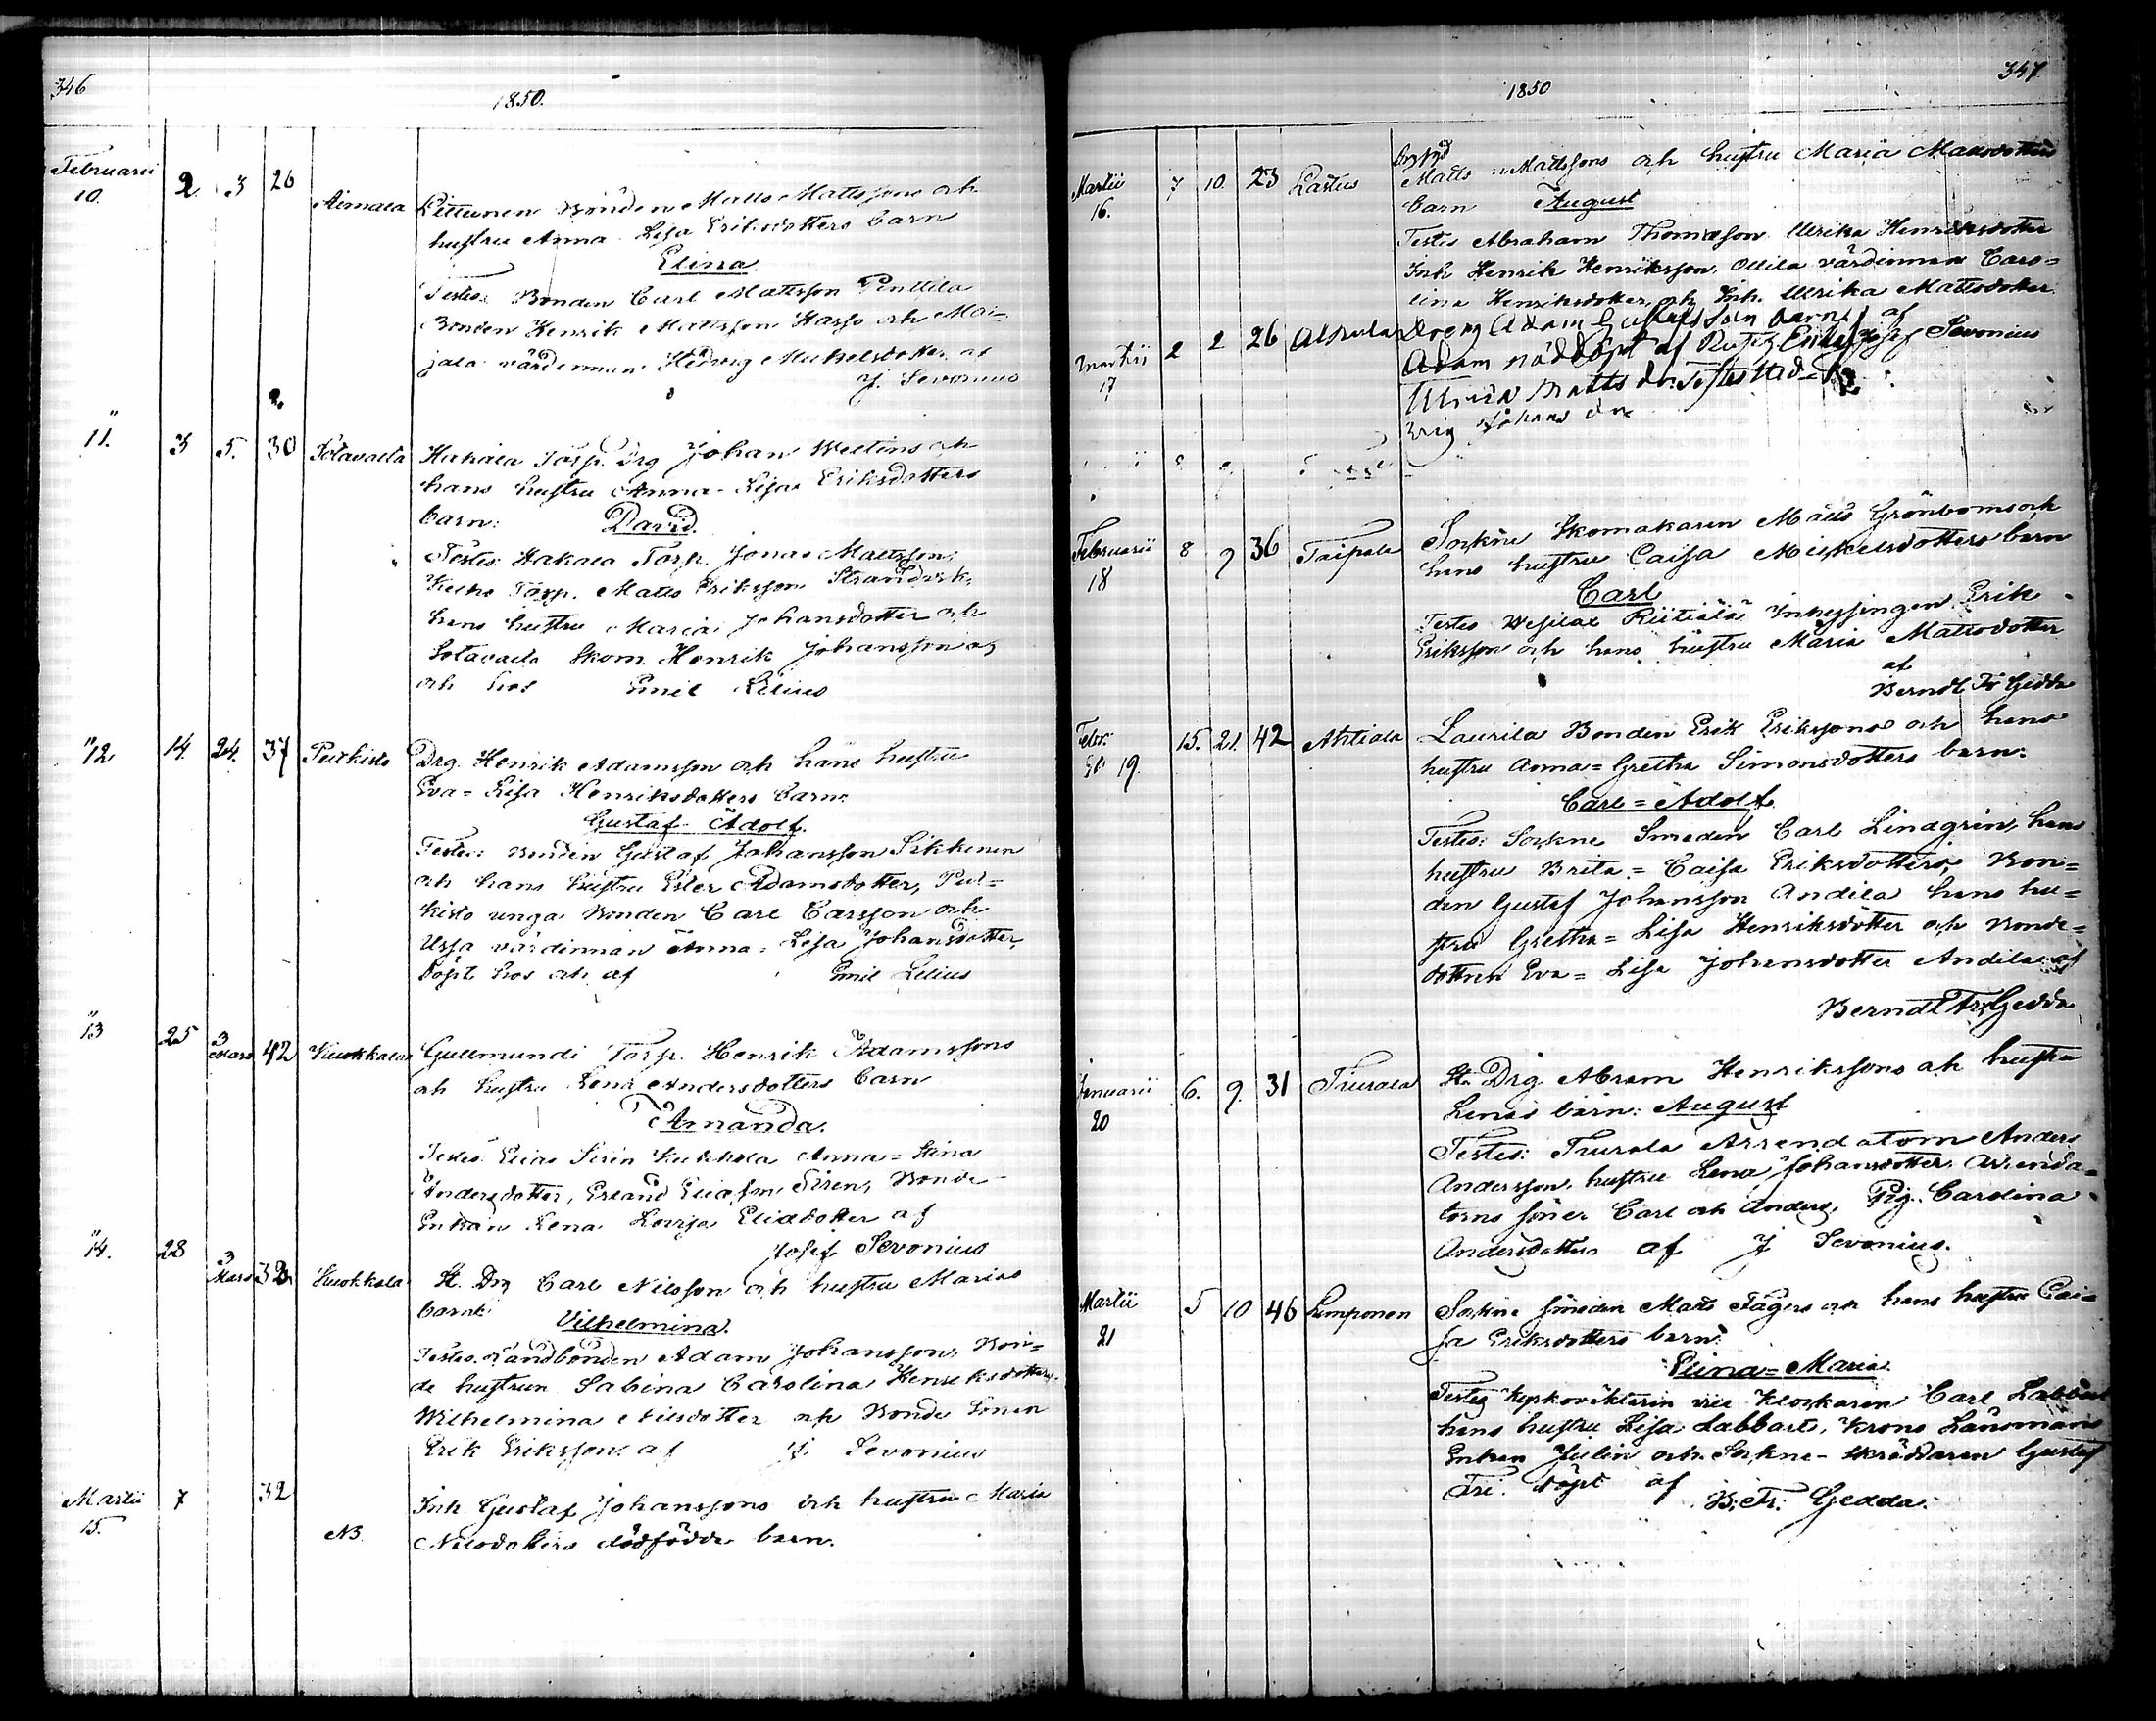 346
1850.
Februarii 10. 2 3 26 Aimala Littunen Bonden Matts Mattssons och
hustru Anna Lisa Eriksdotters barn
Elina
Testes: Bonden Carl Mattsson Penttila
Bonden Henrik Mattsson och Mai-
jala värdinnan Hedvig Michelsdotter af
J. Sevonius
" 11. 3 5. 30 Sotavalla Hakala Torp. Drg Johan Wellins och
hans hustru Anna-Lisa Eriksdotters
barn: David.
Testes: Hakala Torp. Jonas Mattsson,
Torp. Matts Eriksson Strandvik,
hans hustru Maria Johansdotter och
Sotavalla Skom. Henrik Johansson af
och hos Emil Lilius
" 12 14. 24. 37 Puikisto Drg. Henrik Adamsson och hans hustru
Eva=Lisa Henriksdotters barn:
Gustaf Adolf.
Testes: Bonden Gustaf Johansson Sikkinen
och hans hustru Ester Adamsdotter, Pui-
kisto unga Bonden Carl Carsson och
Ussa värdinnan Anna=Lisa Johansdotter,
döpt hos och af Emil Lilius
" 13 25 3 Mars 42 Kuokkala Gullmundi Torp. Henrik Adamssons
och hustru Lena Andersdotters barn
Amanda.
Testes: Elias Sirén Kuokkala Anna=Stina
Andersdotter, Erland Eliasson Siren, Bonde-
Enkan Lena Lovisa Eliædotter af
Josef Sevonius
" 14. 28 3 Mars 32 Kuokkala St. Drg Carl Nilsson och hustru Marias
barn: Vilhelmina.
Testes: Landbonden Adam Johansson, Bon=
de hustrun Sabina Carolina Henriksdotter,
Wilhelmina Nilsdotter och Bonde Sonen
Erik Eriksson af J. Sevonius
Martii 15. 7 32 NB. Inh. Gustaf Johanssons och hustru Maria
Nilsdotters dödfödda barn.
347
1850
Martii 16. 7 10. 23 Lastus
Matts Mattssons och hustru Maria Mattsdotters
barn August
Testes Abraham Thomasson Ulrika Henriksdotter
Inh Henrik Henriksson, Ollila värdinnan Caro=
lina Henriksdotter och Inh. Ulrika Mattsdotter
af Josef Sevonius
Martii 17 2 2 26 Drg Adam Gustafsson barn
Adam nöddöpt af
Ulrica Matts dr. Testes
Johans dr
Februarii 18 8 9 36 Taipale Sockne Skomakaren Matts Grönboms och
hans hustru Caisa Mickelsdotters barn
Carl
Testes Wesilax Riitiälä Inhysingen Erik
Eriksson och hans hustru Maria Mattsdotter
af
Berndt Fr Gedda
Febr. 19. 15. 21. 42 Ahtiala Laurila Bonden Erik Erikssons och hans
hustru Anna=Gretha Simonsdotters barn:
Carl=Adolf
Testes: Sockne Smeden Carl Lindgrén, hans
hustru Brita=Caisa Eriksdotters, Bon=
den Gustaf Johansson Andila hans hu=
stru Gretha=Lisa Henriksdotter och Bonde=
dottren Eva=Lisa Johansdotter Andila af
Berndt Fr. Gedda
Januarii 20 6. 9. 31 Tiurala St. Drg Abram Henrikssons och hustru
Lenas barn: August
Testes: Tiurala Arrendatorn Anders
Andersson, hustru Lena Johansdotter, Arrenda=
torns söner Carl och Anders, Pig. Carolina
Andersdotter af J Sevonius.
Martii 21 5 10 46 Lumponen Sockne smeden Matts Fagers och hans hustru Cai=
sa Eriksdotters barn:
Elina=Maria.
Testes Klockaren Carl Labbart
hans hustru Lisa Labbart, Krono Länsmans
Enkan Julin och Sockne-skräddaren Gustaf
Fri. döpt af B: Fr: Gedda.